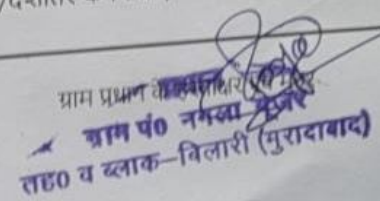 ग्राम प्रधान के हस्ताक्षर
ग्राम पं0 नगला गूजर
तह0 व ब्लाक-बिलारी (मुरादाबाद)